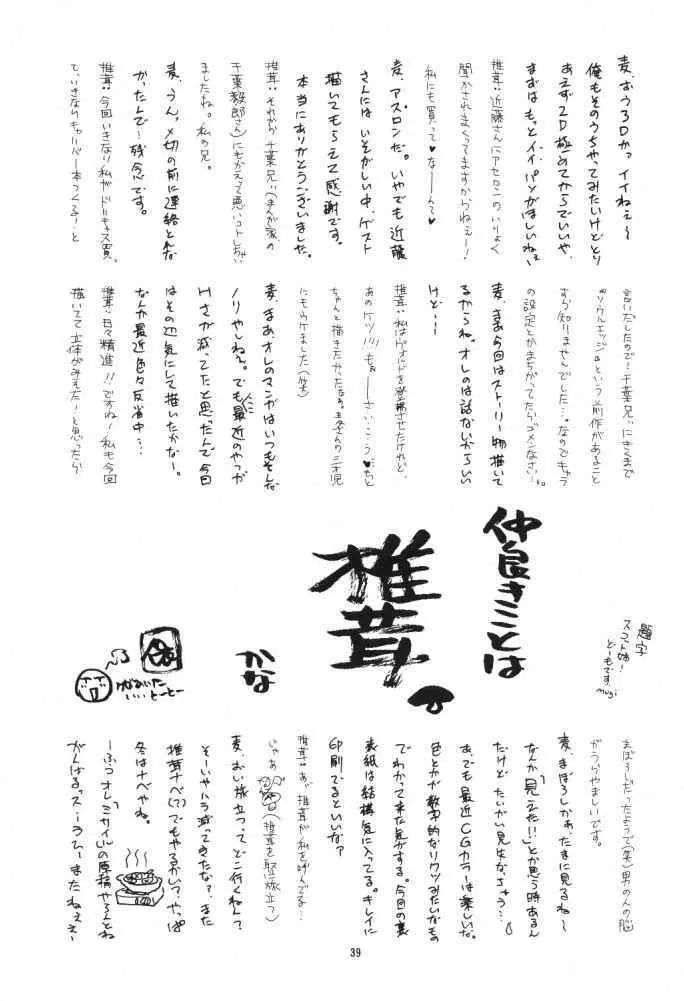 麦、おう3Dかっ イイねぇ〜
俺もそのうちやってみたいけどとり
あえず2D極めてからでいいや、
まずはもっとイイパソがほしいねぇ
椎茸:近藤さんにアセロンのいりょく
聞かされまくってますからねぇー!
私にも買って♥な——んて♥
麦、アスロンだ。いやでも近藤
さんにはいそがしい中、ゲスト
描いてもらえて感謝です。
本当にありがとうございました。
椎茸:それから千葉兄ぃ(まんが家の
千葉毅郎さん)にもかえて悪いコトしちゃい
ましたね。私の兄。
麦、うん。〆切の前に連絡とれな
かったんで…残念です。
椎茸:今回いきなり私がドリキャス買
て、いきなりキャリバー本つくる!と
言いだしたので…千葉兄ぃにきくまで
『ソウルエッジ』という前作があること
すら知りませんでした…。なのでキャラ
の設定とかまちがってたらゴメンなさい…。
麦、まあ今回はストーリー物描いて
るからね。オレのは話ないからいい
けど…
椎茸:私はヴォルドを登場させたけれど、
あのケツ!!!もぉ——さいこう…♥もと
ちゃんと描きたかったなぁ。麦さんの三才児
にもウケました(笑)
麦、まあ、オレのマンガはいつもそんな
ノリやしねぇ。でも最近のやつが
Hさが減ってたと思ったんで今回
はその辺気にして描いたかなー。
なんか最近色々反省中…
椎茸:日々精進!!ですね!私も今回
描いてて立体がみえた!と思ったら
題字
スコット姉!
どーもです。
mugi
仲良きことは
椎茸。
かな
まぼろしだったようで(笑)男の人の脳
がうらやましいです。
麦、まぼろしかぁ、たまに見るね〜
なんか「見えた!!」とか思う時あるん
だけどたいがい見失なちゃう…
あ、でも最近CGカラーは楽しいな。
色とかが数学的なリクツみたいなもの
でわかって来た気がする。今回の裏
表紙は結構気に入ってる。キレイに
印刷でるといいな?
椎茸:あ、椎茸が私を呼んでる…
じゃあ(椎茸を堅に旅立つ)
麦、おい旅立つってどこ行くねん?
そーいやハラ減ってきたな?また
椎茸ナベ(?)でもやるかい?やっぱ
冬はナベやね。
ーふっオレ「ミサイル」の原稿やらんとね
がんばるっスーラァーまたねぇぇ〜
39